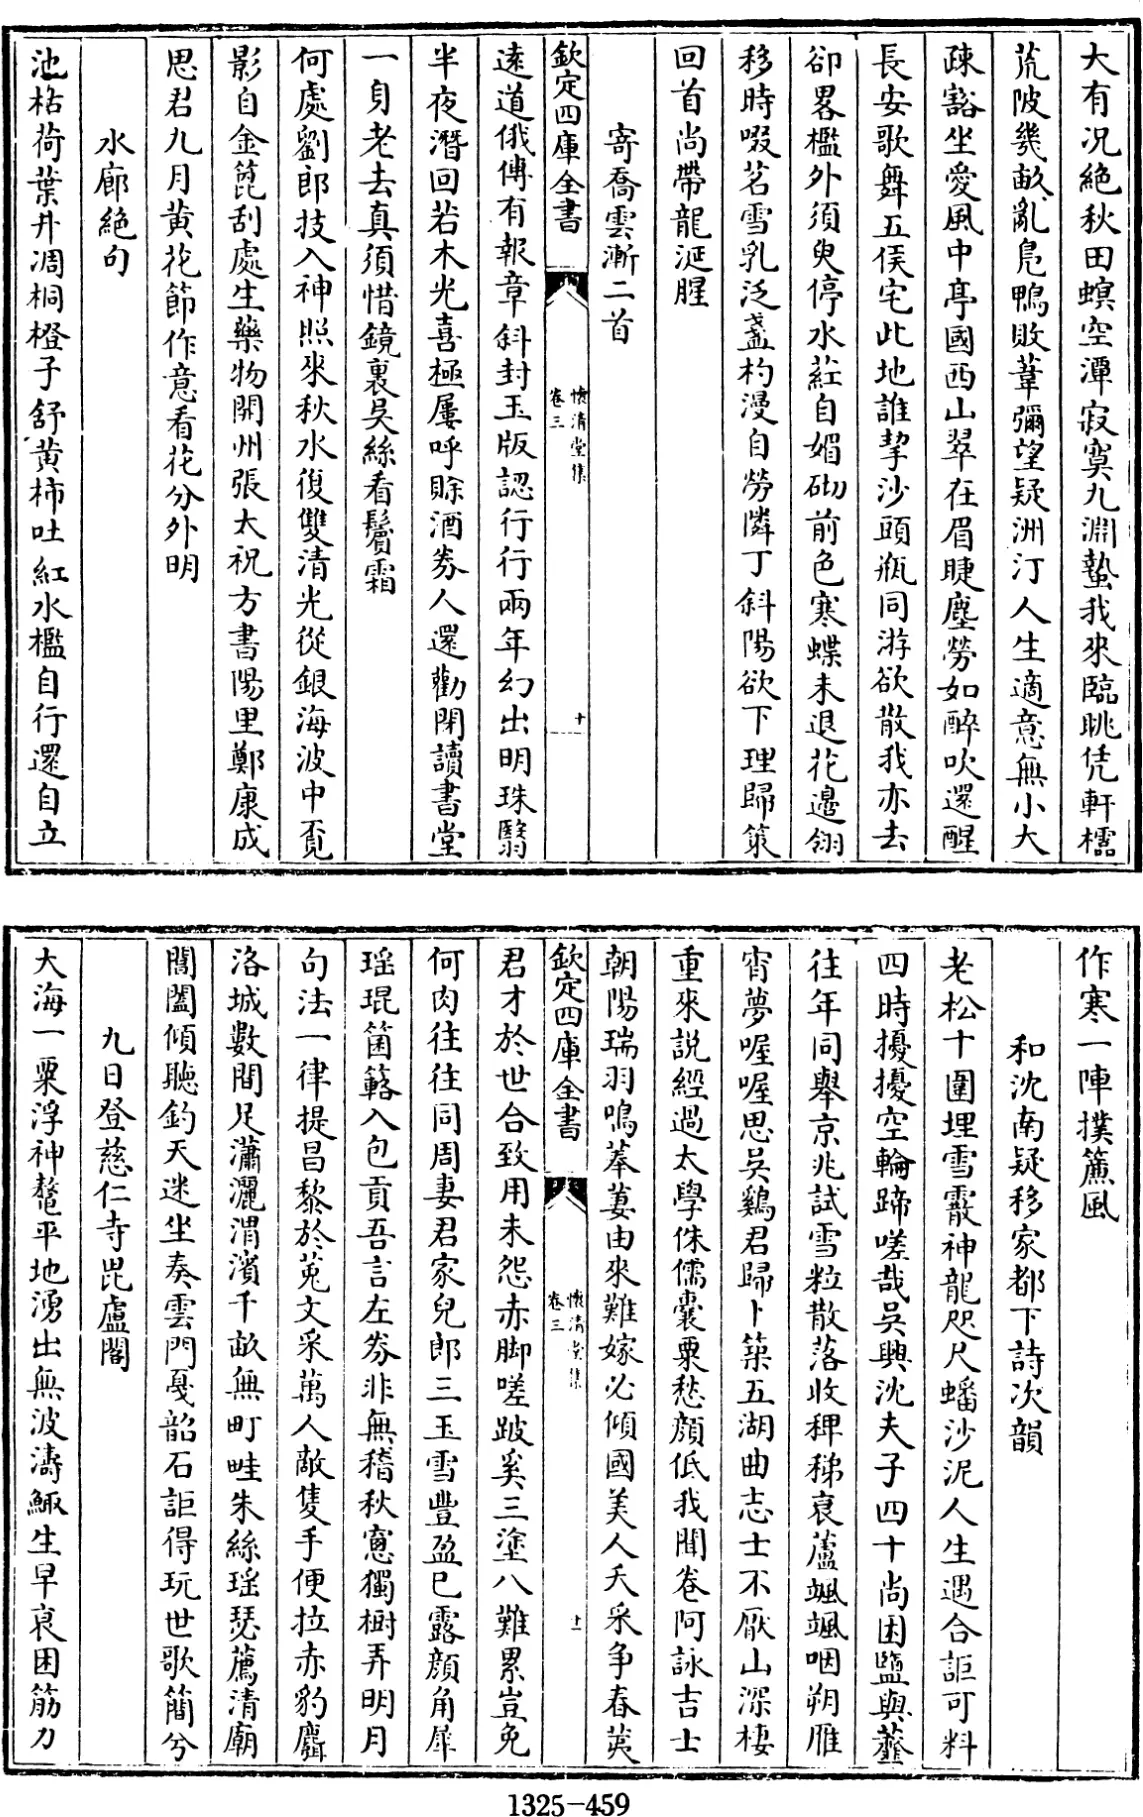 大有况絶秋田螟空潭寂寞九淵蟄我來臨眺凭軒櫺
荒陂幾畝亂鳬鴨敗葦彌望疑洲汀人生適意無小大
疎豁坐愛風中亭國西山翠在眉睫塵勞如醉吹還醒
長安歌舞五侯宅此地誰挈沙頭瓶同游欲散我亦去
卻畧檻外須臾停水葒自媚砌前色寒蝶未退花邊翎
移時啜茗雪乳泛盞杓漫自勞隣丁斜陽欲下理歸策
回首尚帶龍涎腥
寄喬雲漸二首
欽定四庫全書
懷清堂集
卷三
十
遠道俄傳有報章斜封玉版認行行兩年幻出明珠翳
半夜潛回若木光喜極屢呼賒酒劵人還勸閉讀書堂
一身老去真須惜鏡裏吳絲看鬢霜
何處劉郎技入神照來秋水復雙清光從銀海波中覔
影自金篦刮處生藥物開州張太祝方書陽里鄭康成
思君九月黄花節作意看花分外明
水廊絶句
池枯荷葉井凋桐橙子舒黄柿吐紅水檻自行還自立
作寒一陣撲簾風
和沈南疑移家都下詩次韻
老松十圍埋雪霰神龍咫尺蟠沙泥人生遇合詎可料
四時擾擾空輪蹄嗟哉吳興沈夫子四十尚困鹽與虀
往年同舉京兆試雪粒散落收稗稊哀蘆颯颯咽朔雁
宵夢喔喔思吳鷄君歸卜築五湖曲志士不厭山深棲
重來說經過太學侏儒囊粟愁顔低我聞卷阿詠吉士
朝陽瑞羽鳴菶萋由來難嫁必傾國美人夭采争春荑
欽定四庫全書
懷清堂集
卷三
十一
君才於世合致用未怨赤脚嗟跛奚三塗八難累豈免
何肉往往同周妻君家兒郎三玉雪豐盈已露顔角犀
瑶琨箘簵入包貢吾言左劵非無稽秋窻獨樹弄明月
句法一律提昌黎於菟文采萬人敵隻手便拉赤豹麛
洛城數間足瀟灑渭濱千畝無町畦朱絲瑶瑟薦清廟
閶闔傾聽鈞天迷坐奏雲門戞韶石詎得玩世歌簡兮
九日登慈仁寺毘盧閣
大海一粟浮神鼇平地湧出無波濤鯫生早衰困筋力
1325-459